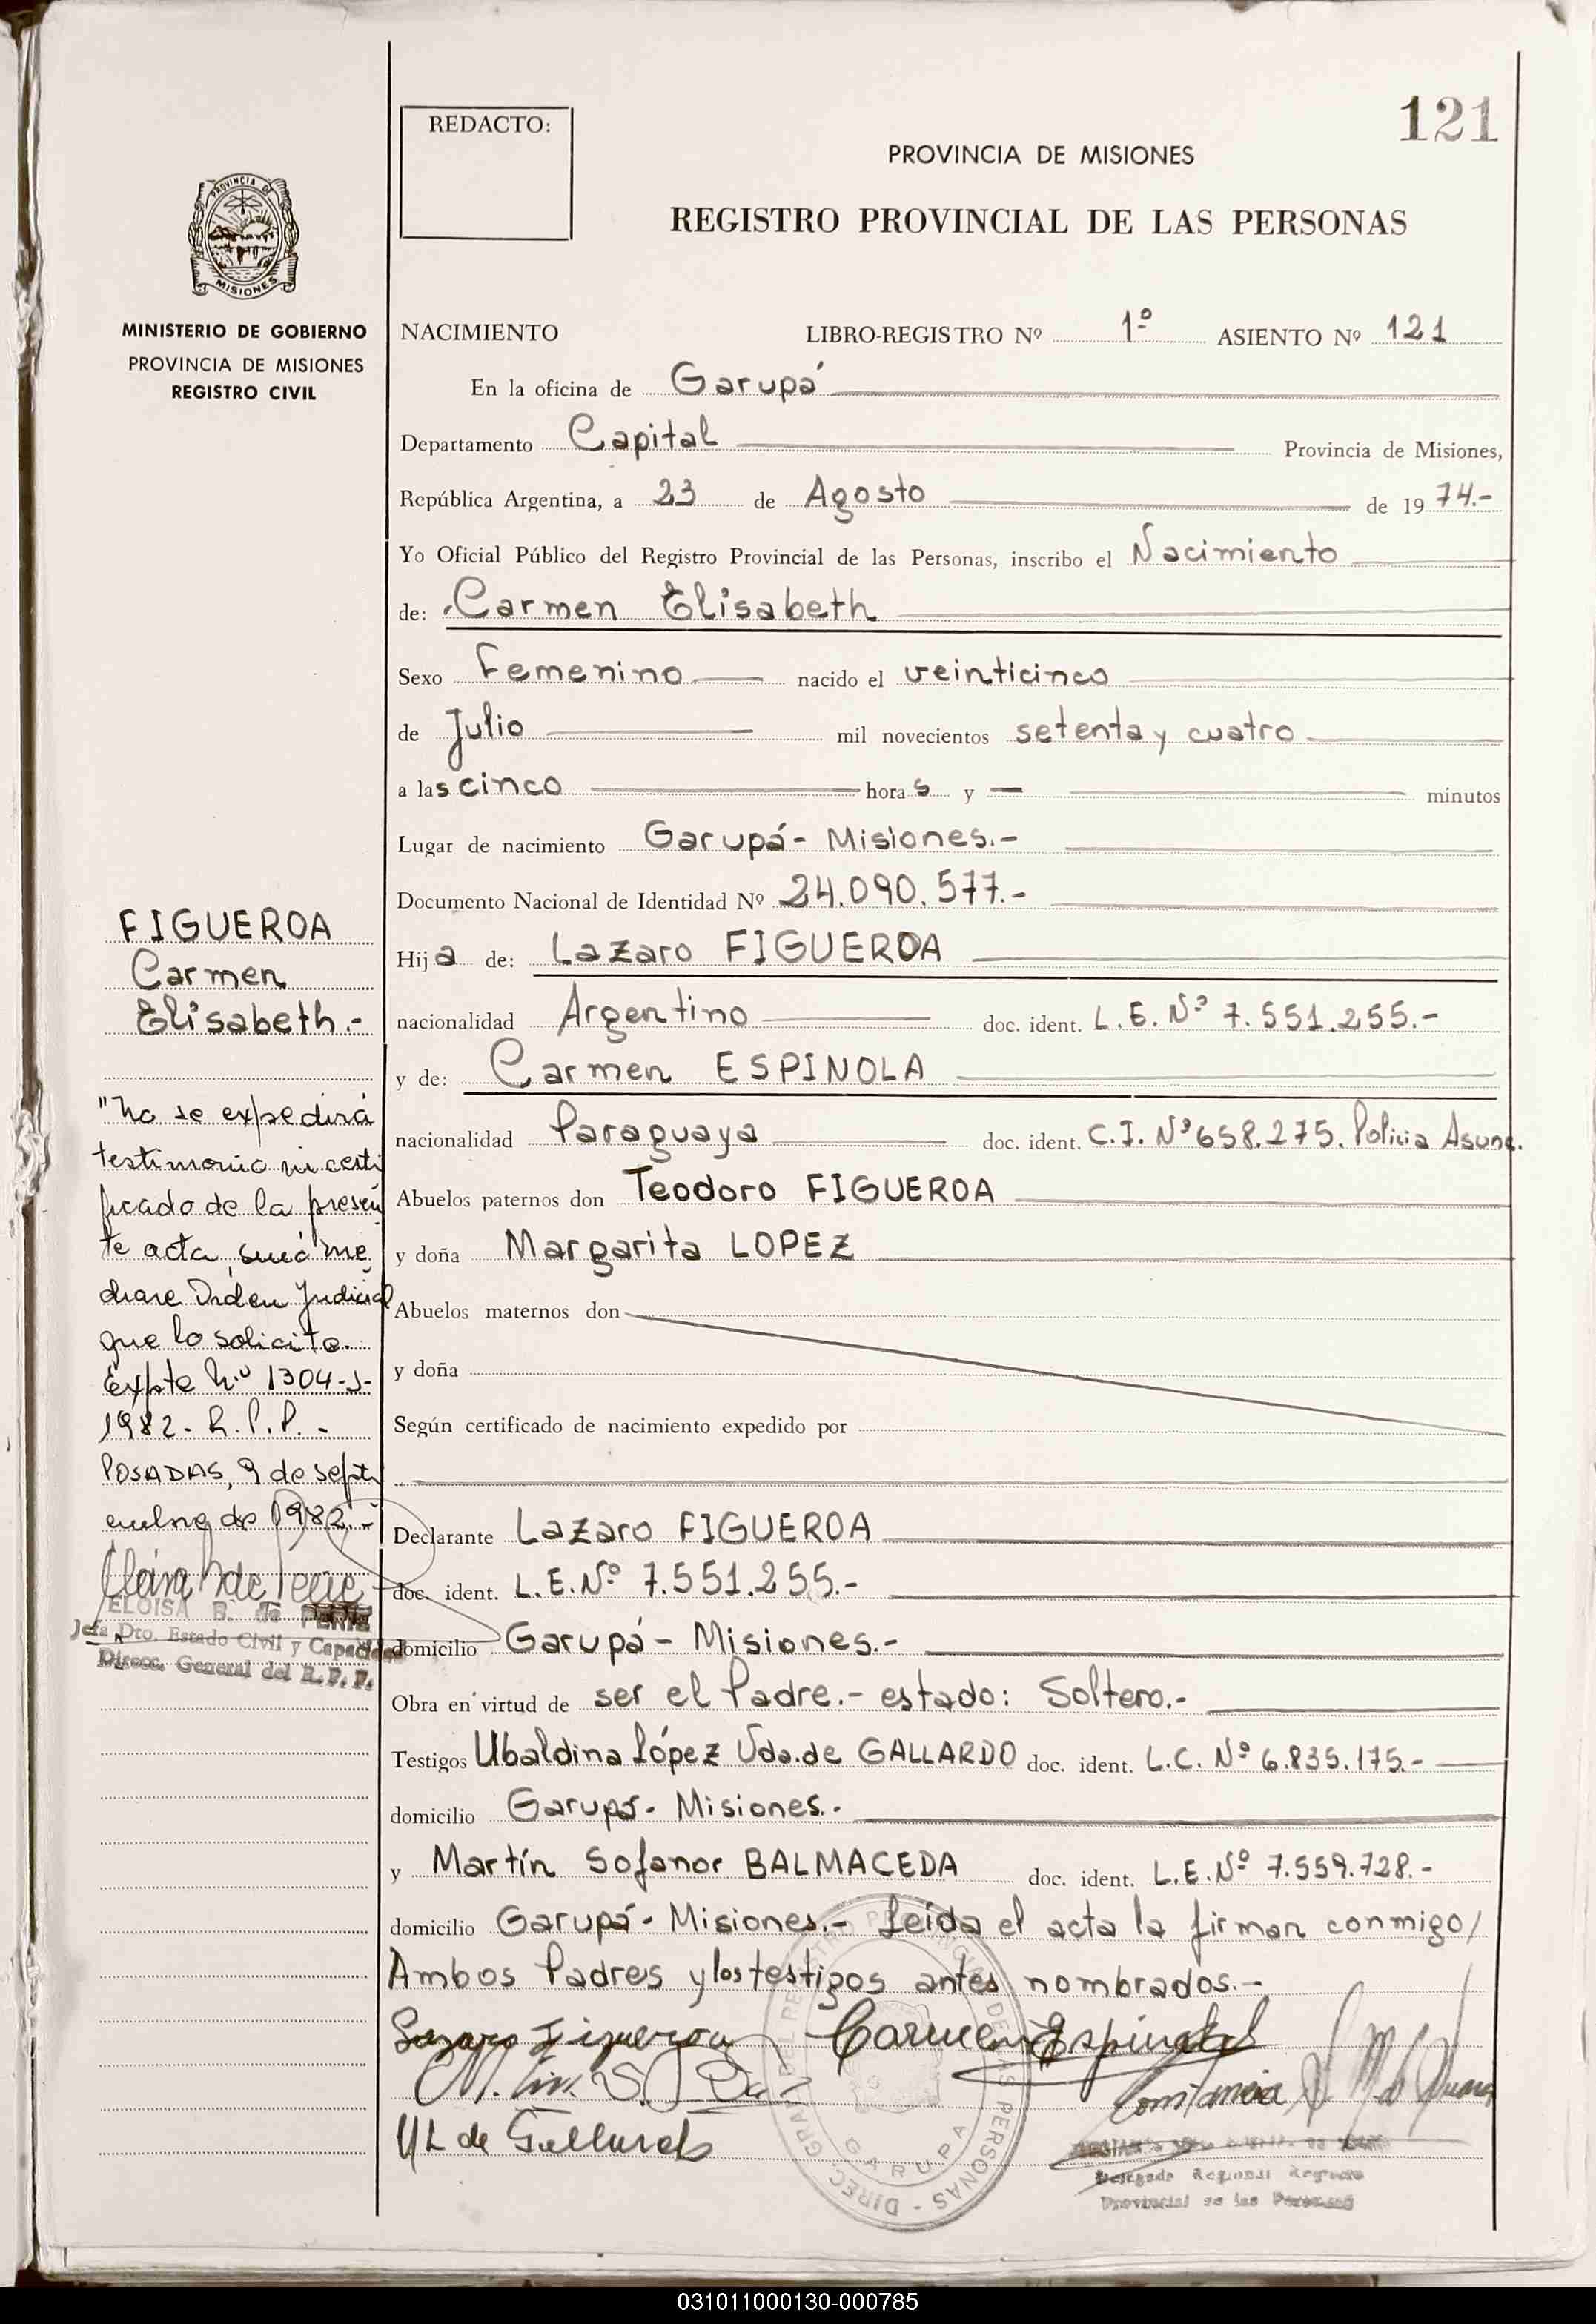 121
REDACTO:
PROVINCIA DE MISIONES
REGISTRO PROVINCIAL DE LAS PERSONAS
PROVINCIA DE
MISIONES
MINISTERIO DE GOBIERNO
PROVINCIA DE MISIONES
REGISTRO CIVIL
NACIMIENTO LIBRO-REGISTRO Nº 1º ASIENTO Nº 121
En la oficina de Garupá
Departamento Capital Provincia de Misiones,
República Argentina, a 23 de Agosto de 1974.-
Yo Oficial Público del Registro Provincial de las Personas, inscribo el Nacimiento
de: Carmen Elisabeth
Sexo Femenino nacido el veinticinco
de Julio mil novecientos setenta y cuatro
a las cinco horas y — minutos
Lugar de nacimiento Garupá- Misiones.-
Documento Nacional de Identidad Nº 24.090.577.-
Hija de: Lazaro FIGUEROA
nacionalidad Argentino doc. ident. L.E. Nº 7.551.255.-
y de: Carmen ESPINOLA
nacionalidad Paraguaya doc. ident. C.I. Nº 658.275. Policia Asunc.
Abuelos paternos don Teodoro FIGUEROA
y doña Margarita LOPEZ
Abuelos maternos don
y doña
Según certificado de nacimiento expedido por
Declarante Lazaro FIGUEROA
doc. ident. L.E.Nº 7.551.255.-
domicilio Garupá- Misiones.-
Obra en virtud de ser el Padre.- estado: Soltero.-
Testigos Ubaldina López Vda.de GALLARDO doc. ident. L.C. Nº 6.835.175.-
domicilio Garupá- Misiones.-
y Martín Sofanor BALMACEDA doc. ident. L.E.Nº 7.559.728.-
domicilio Garupá- Misiones.- Leída el acta la firman conmigo/
Ambos Padres y los testigos antes nombrados.-
Lazaro Figueroa Carmen Espinola
UL de Gallardo
Delegada Regional Registro
Provincial de las Personas
GARUPA
FIGUEROA
Carmen
Elisabeth.-
"No se expedirá
testimonio ni certi
ficado de la presen
te acta, sinó me
diare Orden Judicial
que lo solicite.
Expte N.º 1304-J-
1982- R.P.P.-
POSADAS, 9 de septi
embre de 1982.-
ELOISA B. de
Jefa Dto. Estado Civil y Capacidad
Direcc. General del R.P.P.
031011000130-000785